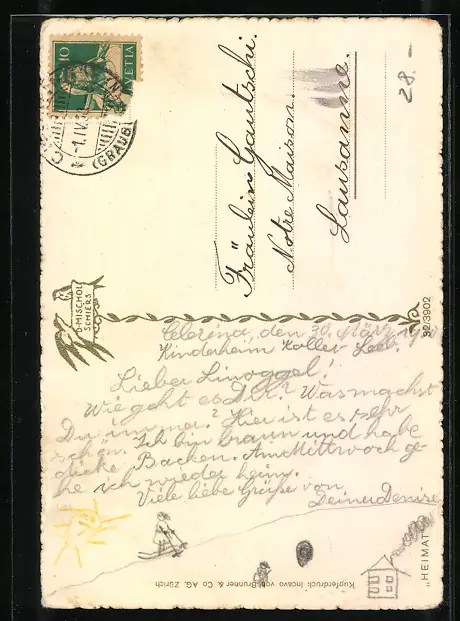 10
HELVETIA
-1.IV.
(GRAUB.)
28.-
Fräulein Gautschi.
Notre Maison.
Lausanne.
D. MISCHOL
SCHIERS
92/3902
Celerina, den 30. März
Kinderheim Koller
Lieber Linoggel!
Wie geht es Dir? Was machst
Du immer? Hier ist es sehr
schön. Ich bin braun und habe
dicke Backen. Am Mittwoch ge-
he ich wieder heim.
Viele liebe Grüße von
Deiner Denise
"HEIMAT
Kupferdruck Incavo von Brunner & Co AG. Zürich